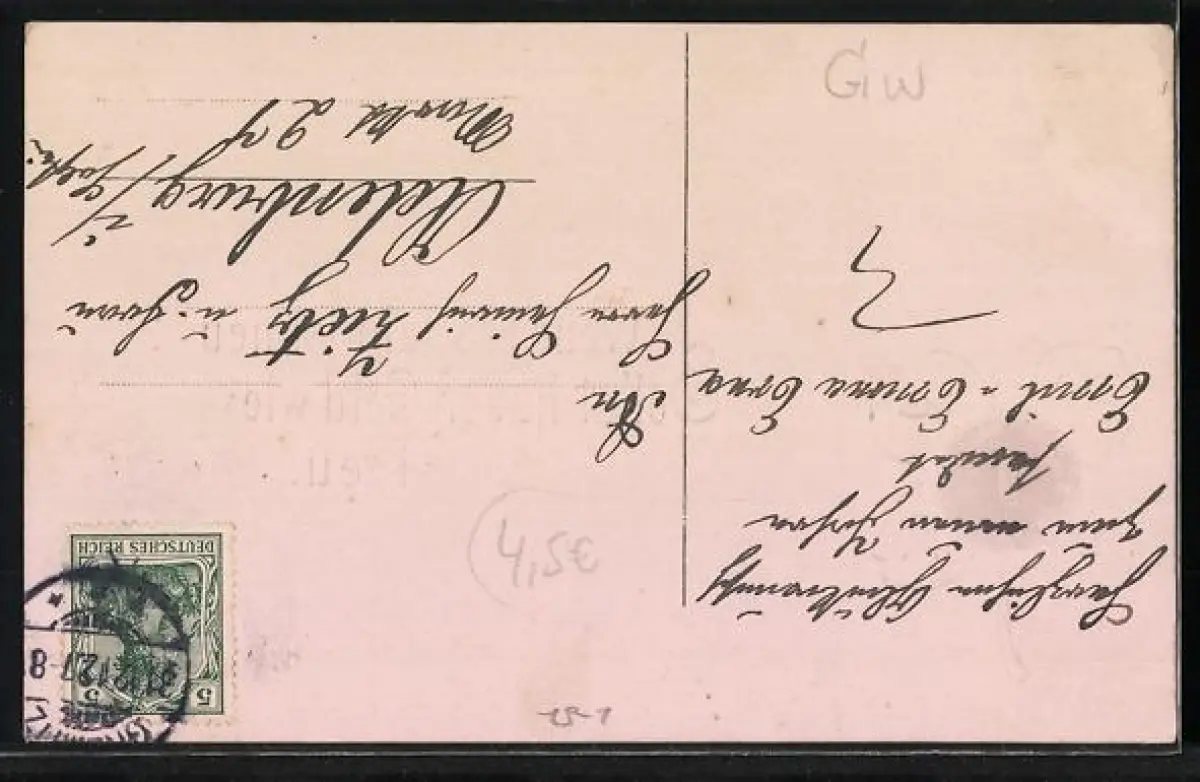 Herzlichen Glückwunsch
zum neuen Jahre
sendet
Emil - Emma Erna
An
Herrn Heinrich Tietz u. Frau
Altenburg
Markt 27
DEUTSCHES REICH
5 5
31.12.12 7-8
GW
4,5€